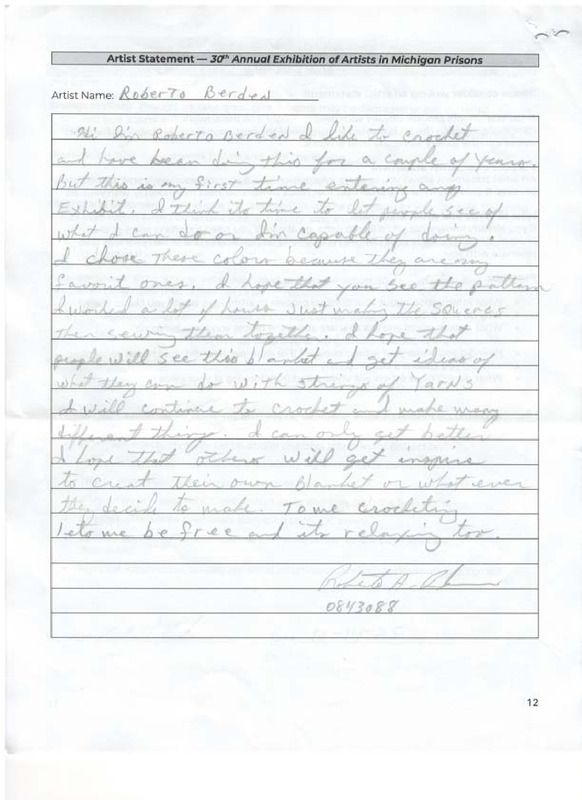 Artist Statement — 30th Annual Exhibition of Artists in Michigan Prisons
Artist Name: Roberto Berden
Hi I'm Roberto Berden I like to crochet
and have been doing this for a couple of years.
But this is my first time entering any
Exhibit. I think its time to let people see of
what I can do or I'm capable of doing.
I chose these colors because they are my
favorit ones. I hope that you see the pattern
I worked a lot of hours Just making the squares
then sewing them together. I hope that
people will see this blanket and get ideas of
what they can do with strings of Yarns
I will continue to crochet and make many
different things. I can only get better
I hope that others will get inspire
to creat their own blanket or what ever
they decide to make. To me crocheting
lets me be free and its relaxing too.
0843088
12